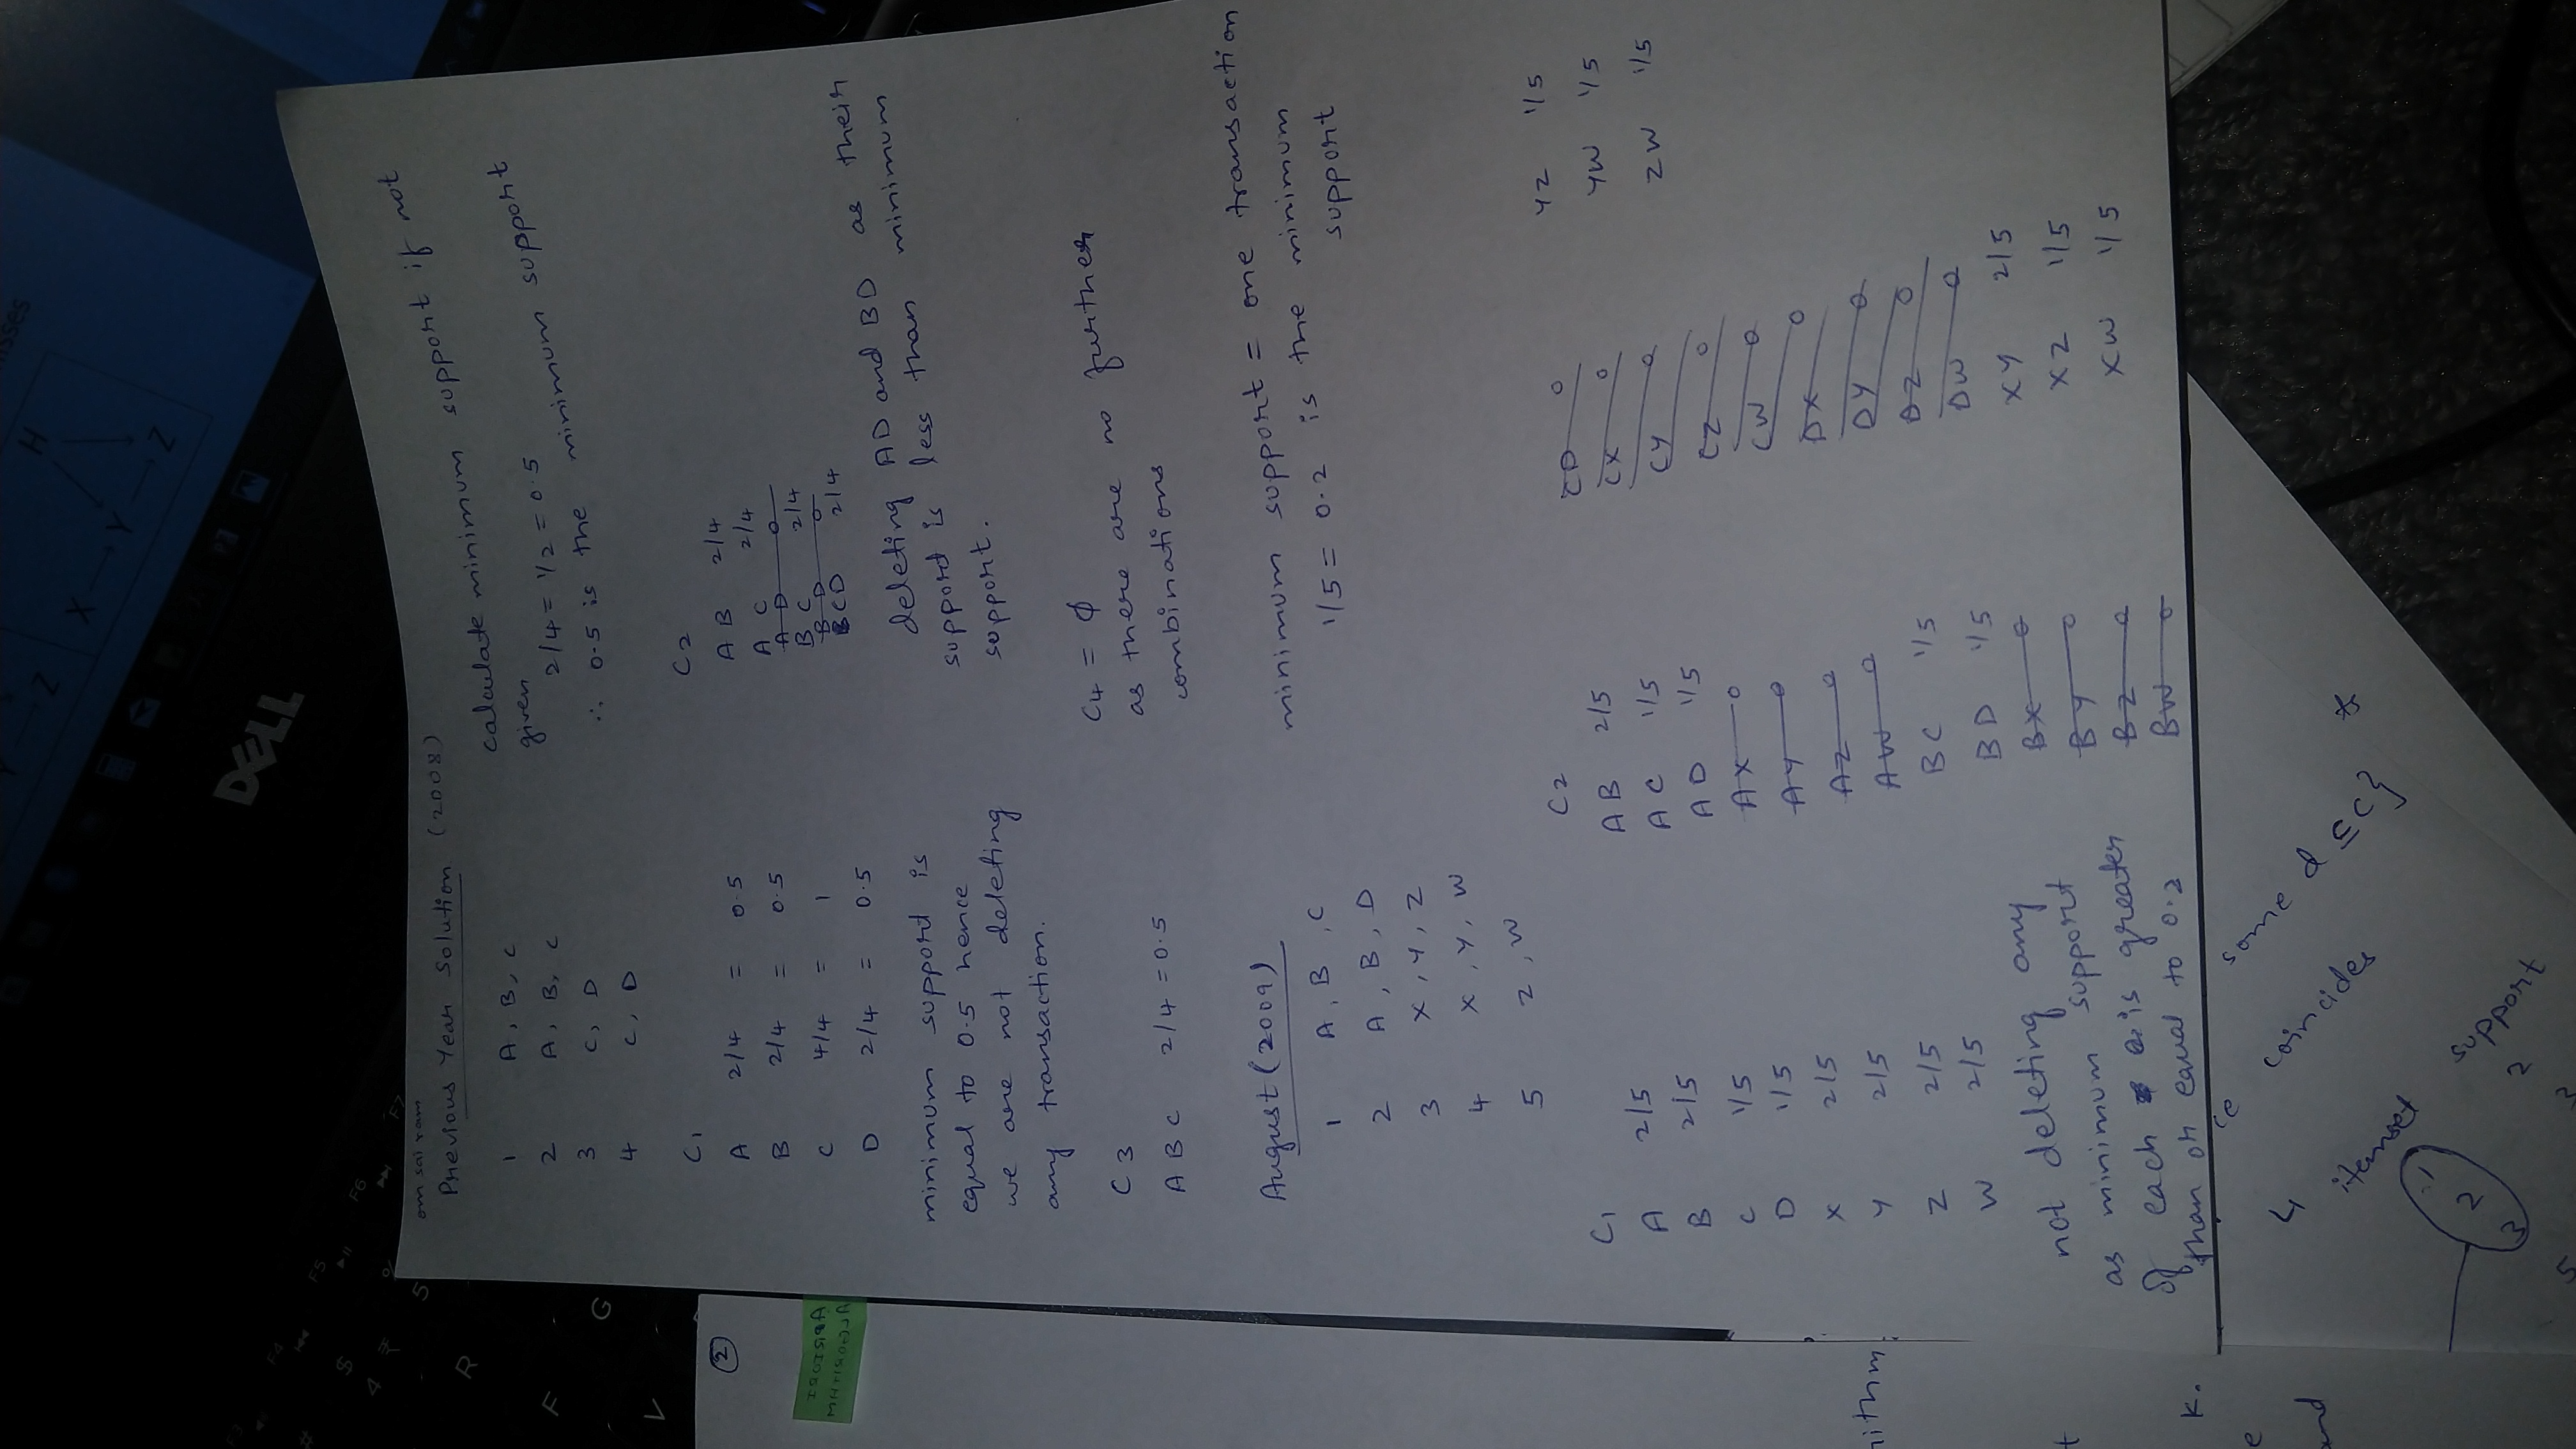 H
Z
X Y
Z
DELL
F4
F5
F6
F7
#
$
4
₹
%
5
R
F
G
V
om sai ram
Previous Year Solution (2008)
1 A, B, C
2 A, B, C
3 C, D
4 C, D
calculate minimum support if not
given
2/4 = 1/2 = 0.5
∴ 0.5 is the minimum support
C1
A 2/4 = 0.5
B 2/4 = 0.5
C 4/4 = 1
D 2/4 = 0.5
minimum support is
equal to 0.5 hence
we are not deleting
any transaction.
C2
A B 2/4
A C 2/4
A D 0
B C 2/4
B D 0
CD 2/4
deleting AD and BD as their
support is less than minimum
support.
C3
A B C 2/4 = 0.5
C4 = ϕ
as there are no further
combinations
August (2009)
1 A, B, C
2 A, B, D
3 X, Y, Z
4 X, Y, W
5 Z, W
minimum support = one transaction
1/5 = 0.2 is the minimum
support
C1
A 2/5
B 2/5
C 1/5
D 1/5
X 2/5
Y 2/5
Z 2/5
W 2/5
not deleting any
as minimum support
of each is greater
than or equal to 0.2
C2
AB 2/5
AC 1/5
AD 1/5
AX 0
AY 0
AZ 0
AW 0
BC 1/5
BD 1/5
BX 0
BY 0
BZ 0
BW 0
CD 0
CX 0
CY 0
CZ 0
CW 0
DX 0
DY 0
DZ 0
DW 0
XY 2/5
XZ 1/5
XW 1/5
YZ 1/5
YW 1/5
ZW 1/5
2
APRIORI
ALGORITHM
k.
coincides
some d ⊆ C}
itemset
support
1
2
3
5
2
3